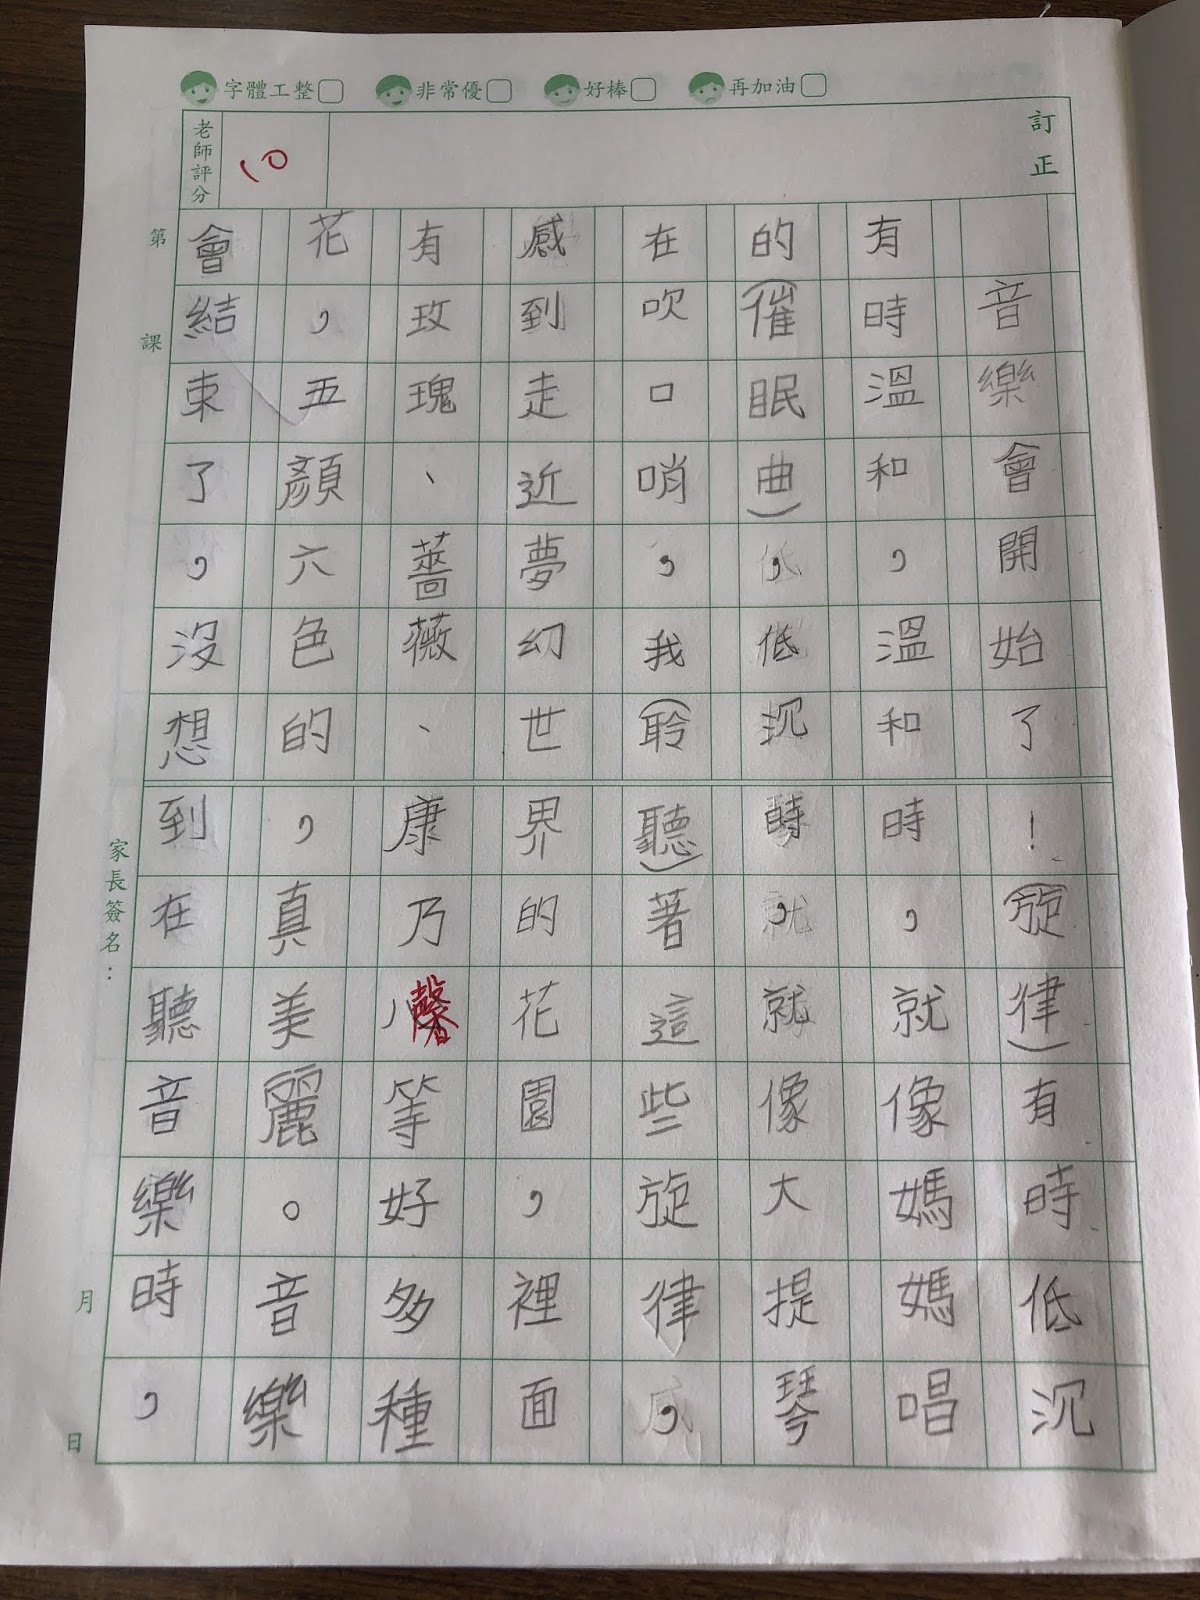 字體工整
非常優
好棒
再加油
訂正
老師評分
10
音樂會開始了！(旋律)有時低沉
有時溫和，溫和時，就像媽媽唱
的(催眠曲)，低沉時，就像大提琴
在吹口哨，我(聆聽)著這些旋律，
感到走近夢幻世界的花園，裡面
有玫瑰、薔薇、康乃馨等好多種
花，五顏六色的，真美麗。音樂
會結束了，沒想到在聽音樂時，
第 課
家長簽名：
月 日